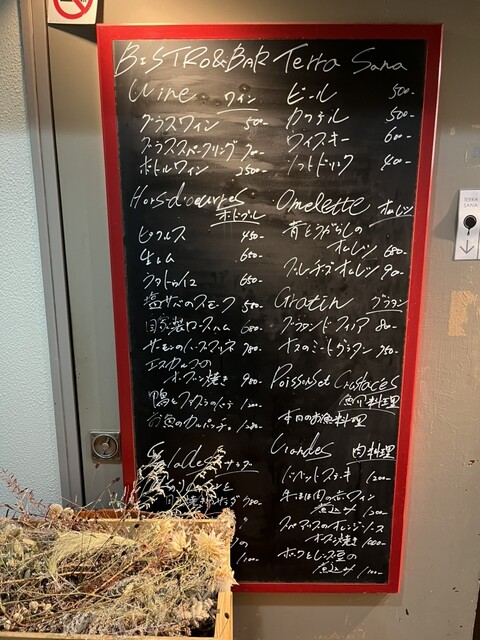 BISTRO&BAR Terra Sana
Wine ワイン
グラスワイン 500-
グラススパークリング 700-
ボトルワイン 2500-
ビール 500-
カクテル 500-
ウィスキー 600-
ソフトドリンク 400-
Hors d'oeuvres
オードブル
ピクルス 450-
生ハム 650-
ラタトゥイユ 650-
塩サバのスモーク 580-
自家製ロースハム 680-
サーモンのハーブマリネ 780-
エスカルゴの
オーブン焼き 900-
鴨とフォアグラの
お魚のカルパッチョ 1200-
Salades サラダ
Omelette オムレツ
青とうがらしの
オムレツ 680-
フレンチオムレツ
Gratin グラタン
ナスのミートグラタン 780-
Poissons et Crustaces
魚介料理
本日のお魚料理
Viandes 肉料理
ハンバーグステーキ 1200-
牛ほほ肉の赤ワイン
煮込み 1200-
スペアリブのオレンジソース
オーブン焼き 1000-
ポークとレンズ豆の
煮込み 1100-
TERRA
SANA